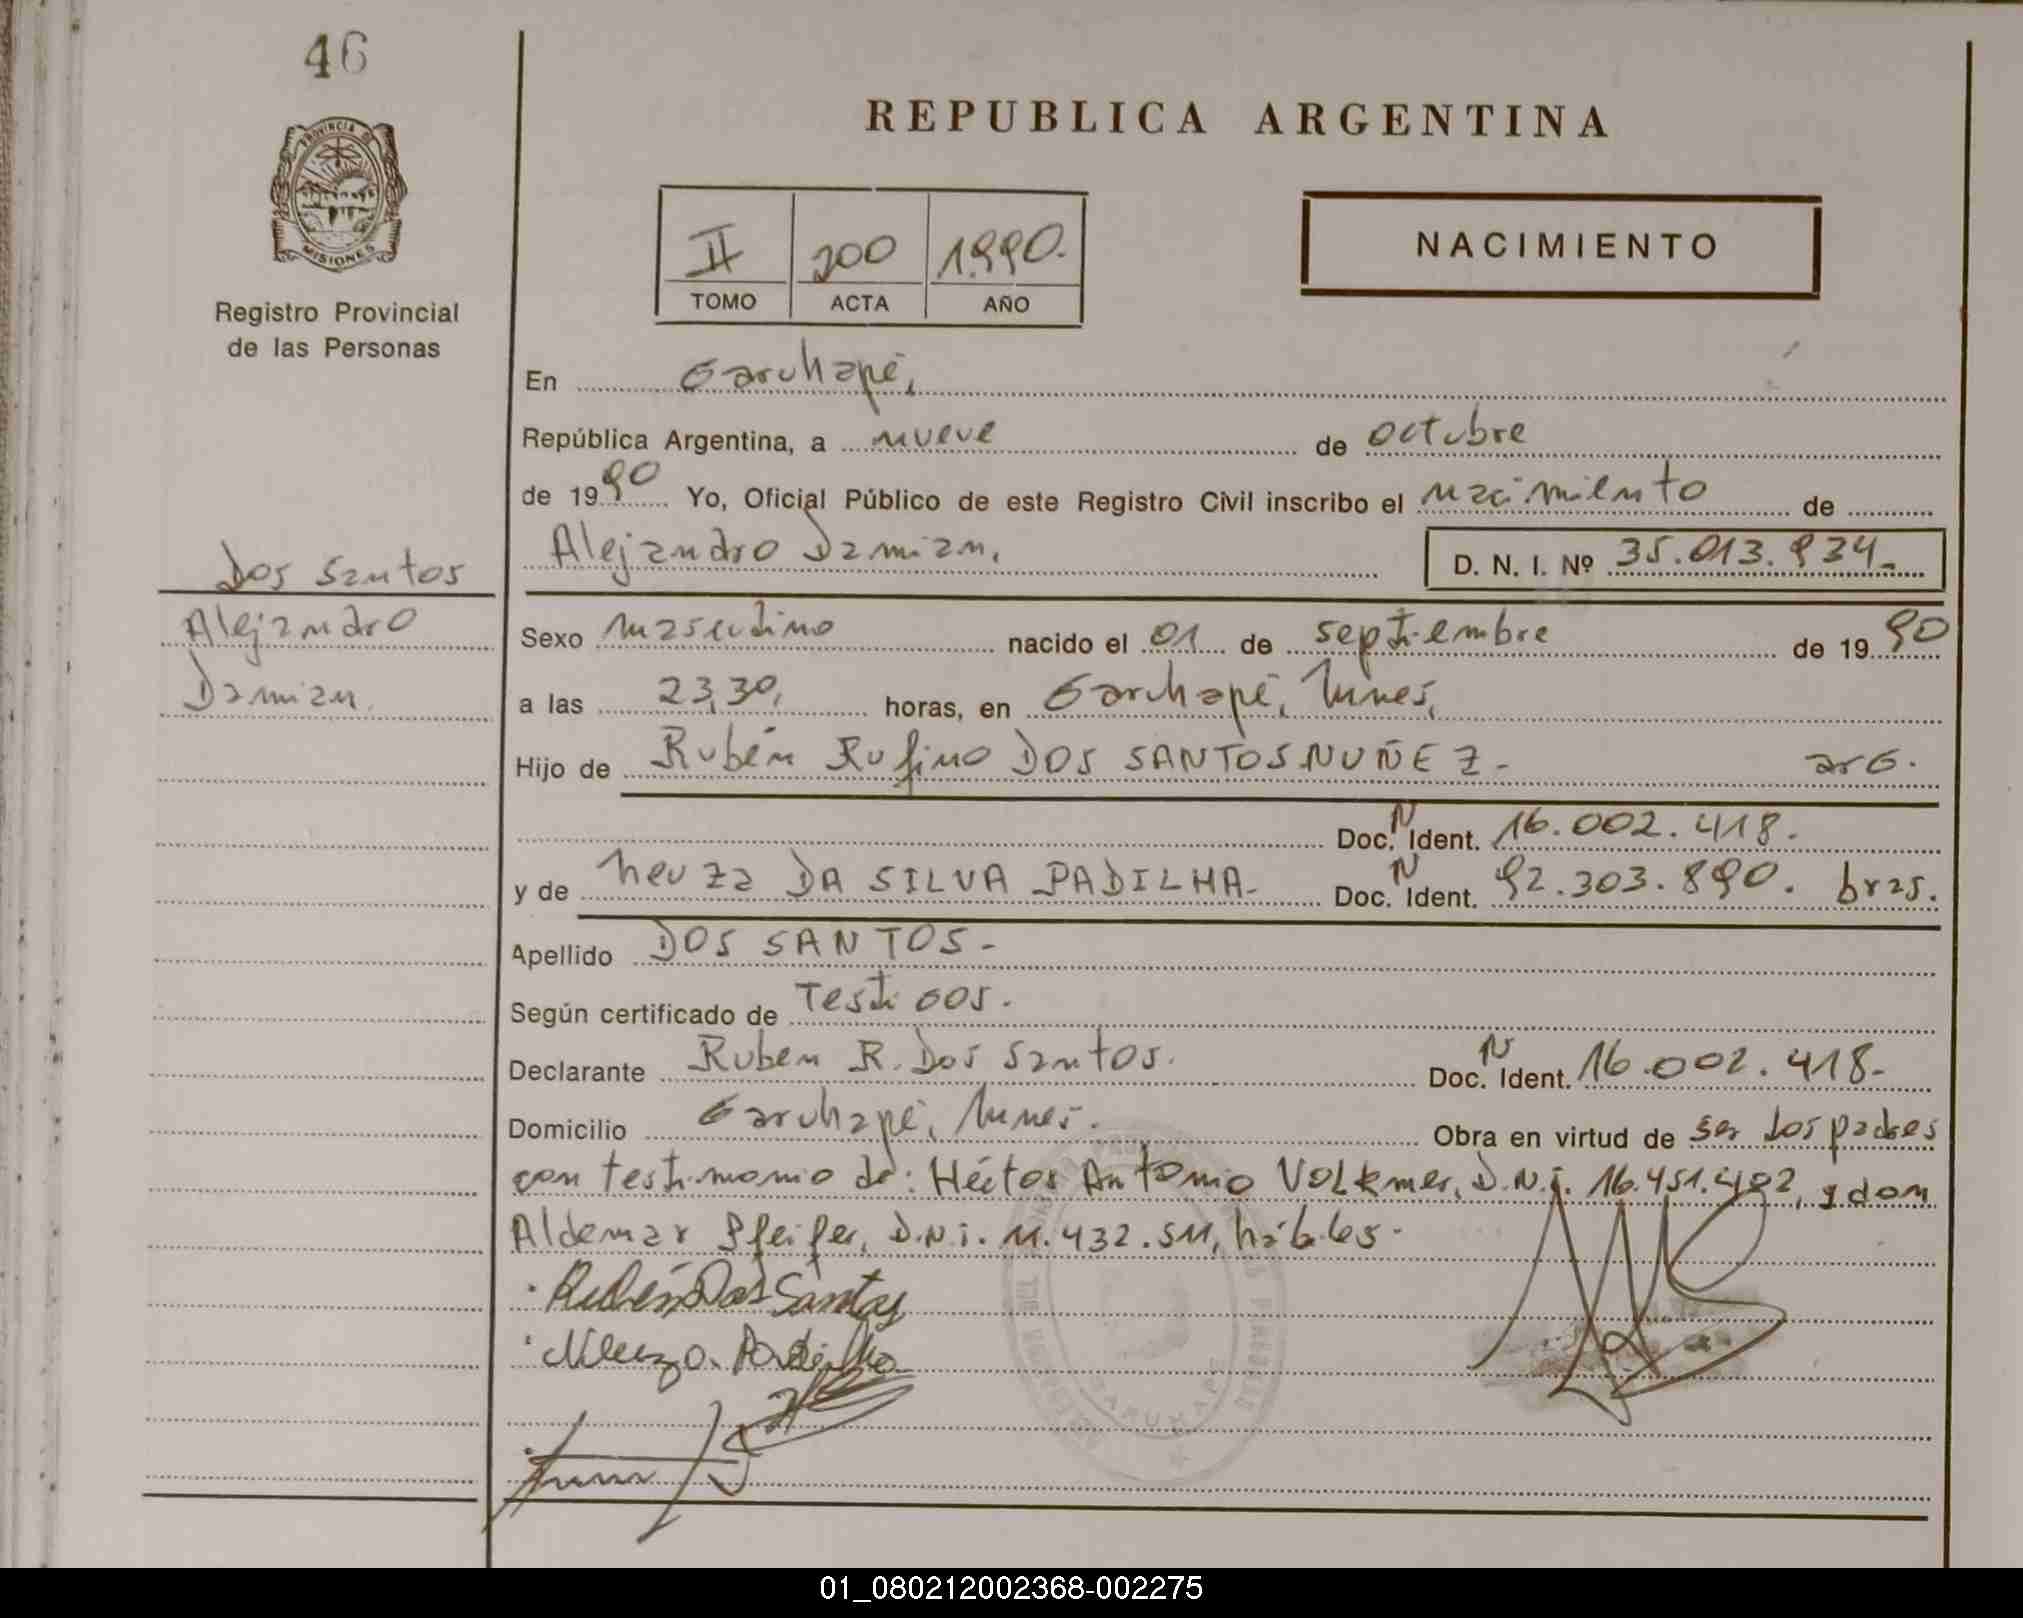 46
REPUBLICA ARGENTINA
PROVINCIA DE
MISIONES
Registro Provincial
de las Personas
II 200 1.990.
TOMO ACTA AÑO
NACIMIENTO
En Garuhapé,
República Argentina, a nueve de octubre
de 1990 Yo, Oficial Público de este Registro Civil inscribo el nacimiento de
Alejandro Damian, D. N. I. Nº 35.013.934.-
Dos Santos
Alejandro
Damian.
Sexo masculino nacido el 01 de septiembre de 1990
a las 23,30, horas, en Garuhapé, Mnes,
Hijo de Rubén Rufino DOS SANTOS NUÑEZ - arg.
Doc. N Ident. 16.002.418.
y de Neuza DA SILVA PADILHA- Doc. N Ident. 92.303.890. bras.
Apellido DOS SANTOS -
Según certificado de Testigos.
Declarante Ruben R. Dos Santos. Doc. N Ident. 16.002.418-
Domicilio Garuhapé, Mnes. Obra en virtud de ser los padres
con testimonio de: Héctor Antonio VOLKmer, D.N.i. 16.451.492, y don
Aldemar Pfeifer, D.N.i. 11.432.511, hábiles.
Rubén Dos Santos
Neuza Padilha
GARUHAPE
01_080212002368-002275